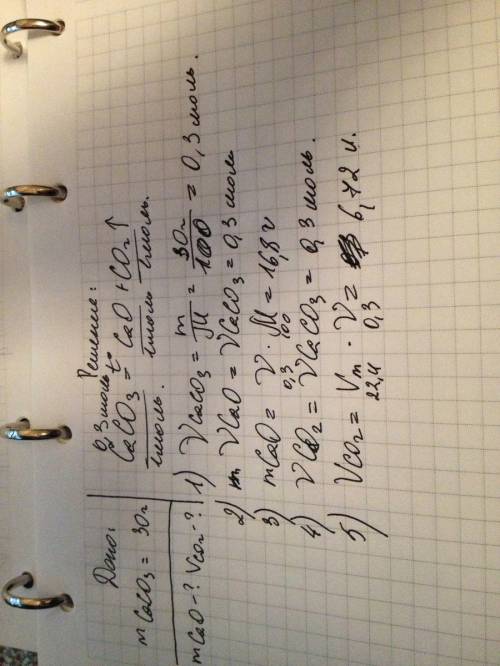 Дано:
m CaCO3 = 30г
m CaO - ? Vco2 - ?
Решение:
0,3 моль t
CaCO3 = CaO + CO2 ↑
1моль. 1моль 1моль.
1) ν CaCO3 = m / M = 30г / 100 = 0,3 моль.
2) ν CaO = ν CaCO3 = 0,3 моль
3) m CaO = ν · M = 16,8 г
0,3 100
4) ν CO2 = ν CaCO3 = 0,3 моль.
5) Vco2 = Vm · ν = 6,72 л.
22,4 0,3